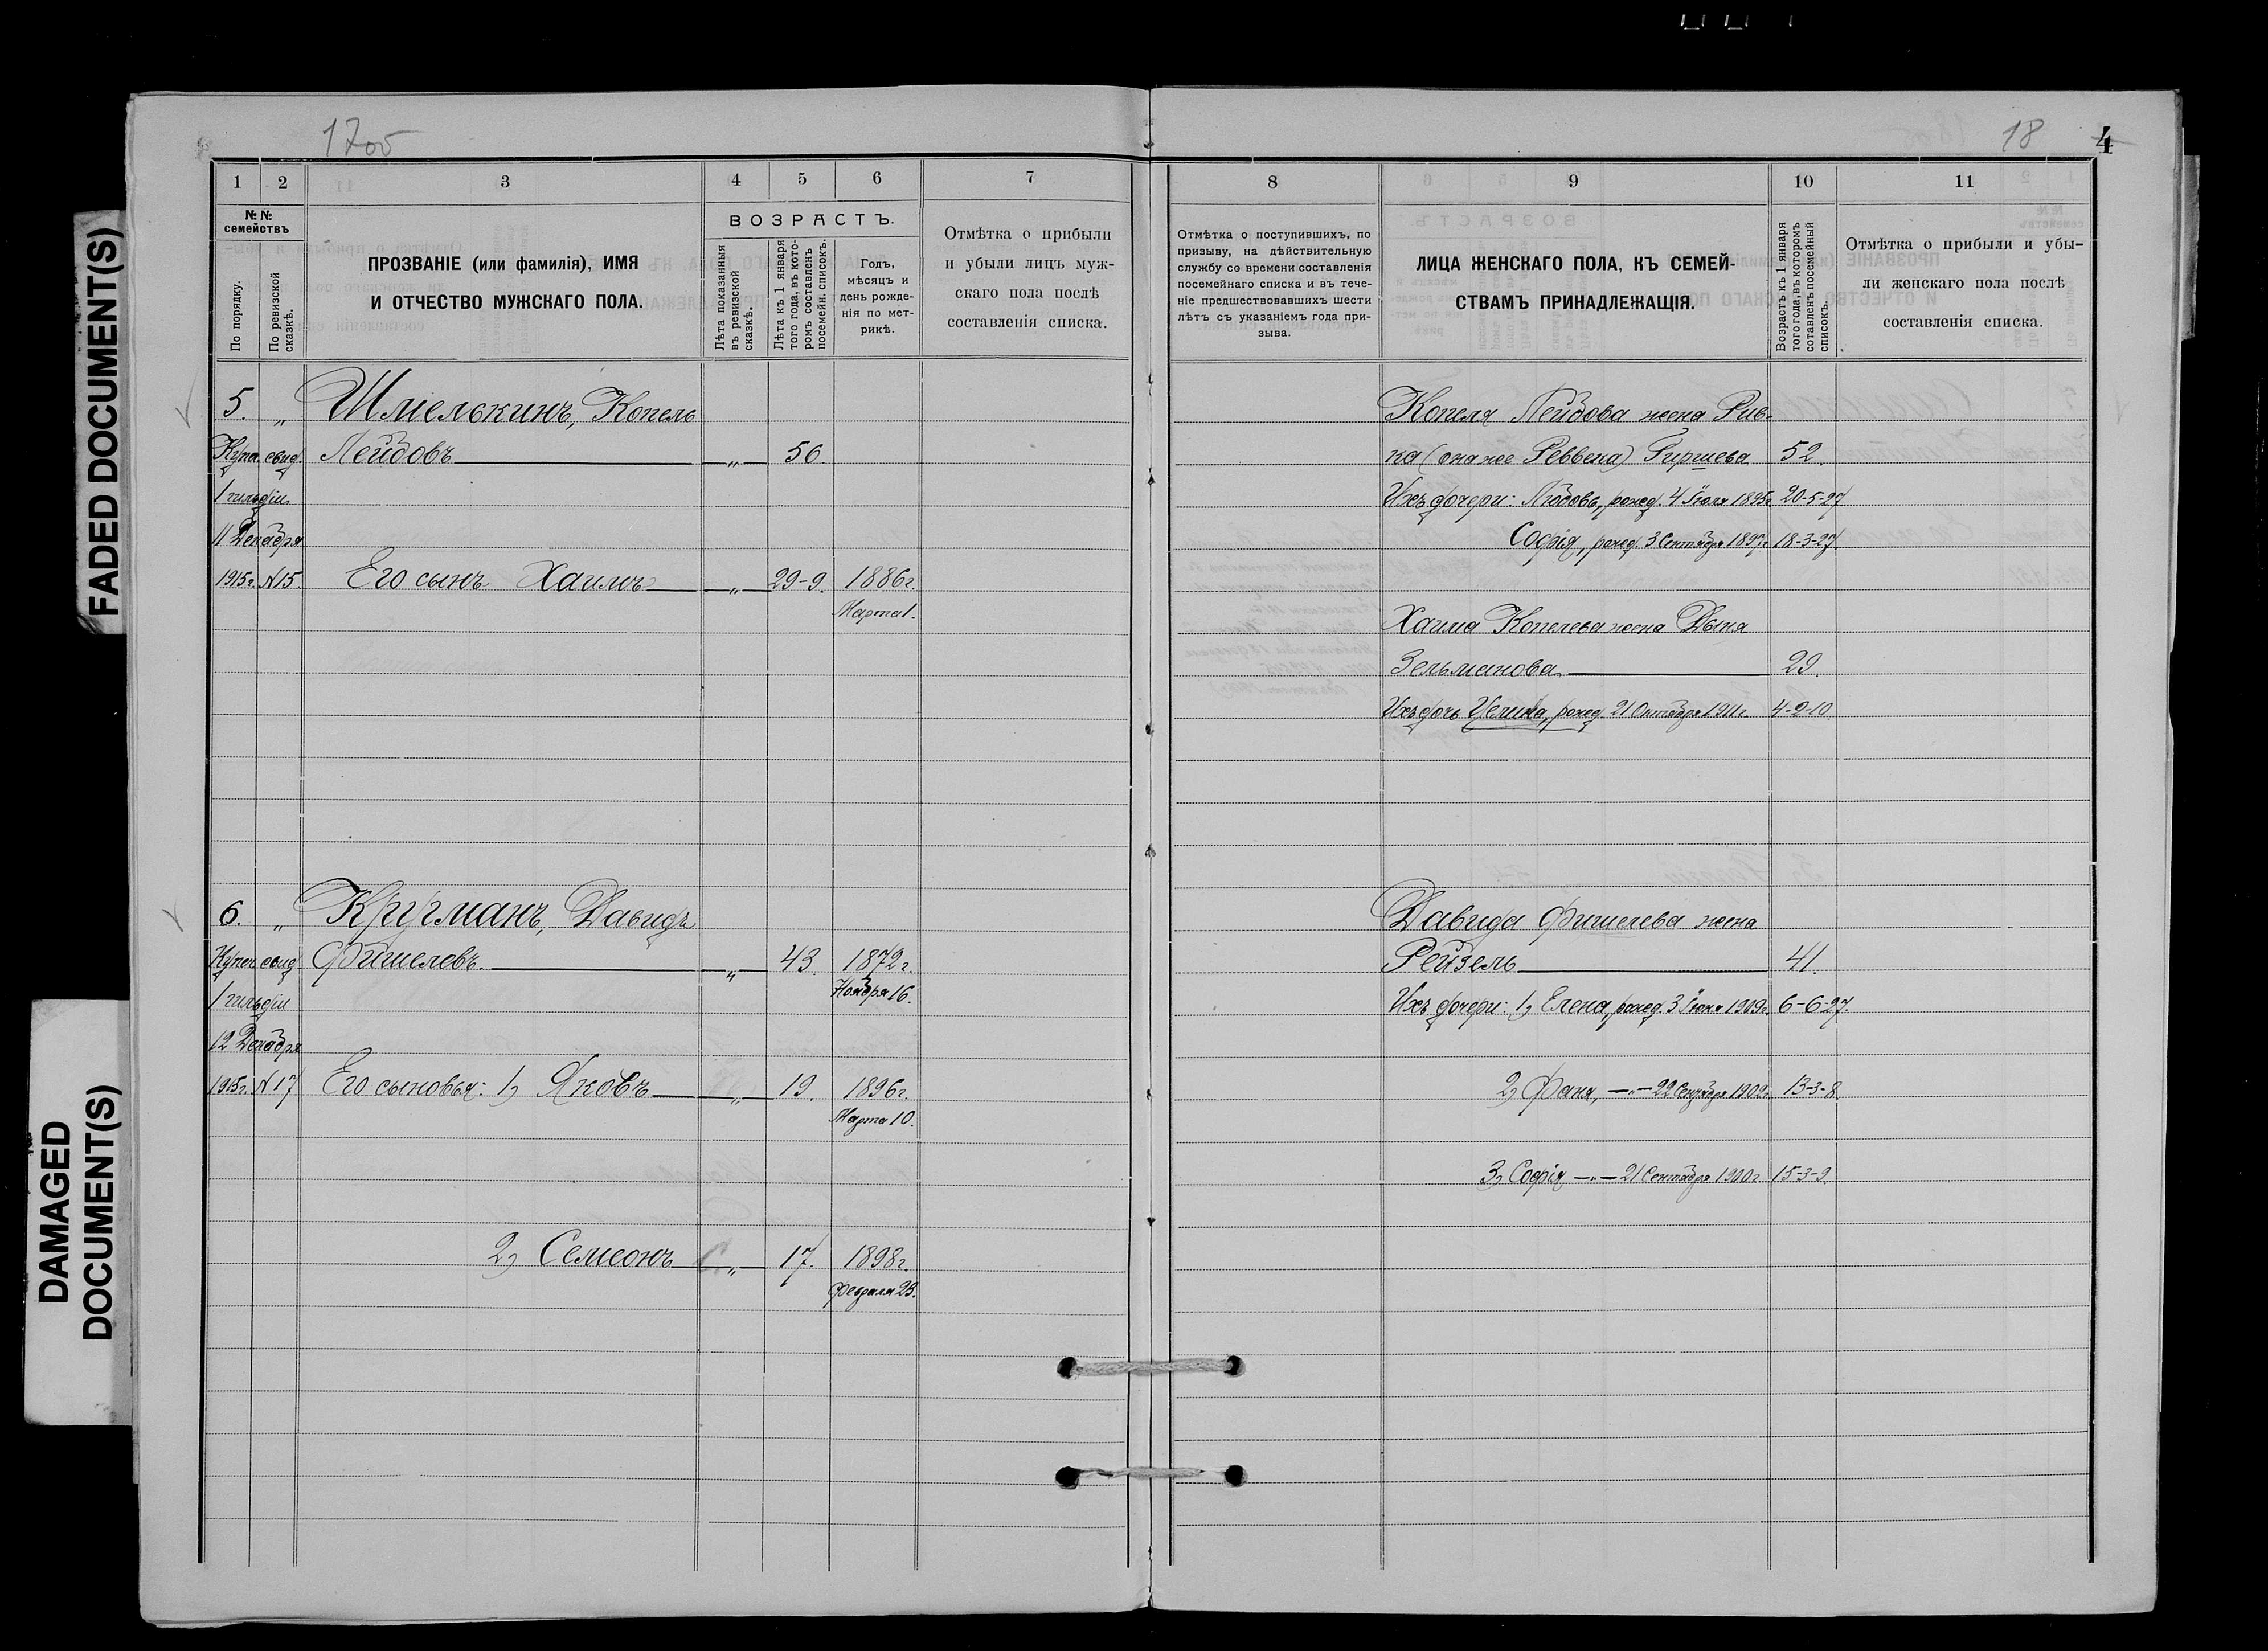 17об
18 4
FADED DOCUMENT(S)
DAMAGED
DOCUMENT(S)
1 2 3 4 5 6 7
№ №
семействъ
По порядку.
По ревизской
сказкѣ.
ПРОЗВАНІЕ (или фамилія), ИМЯ
И ОТЧЕСТВО МУЖСКАГО ПОЛА.
ВОЗРАСТЪ.
Лѣта показанныя
въ ревизской
сказкѣ.
Лѣта къ 1 января
того года, въ кото-
ромъ составленъ
посемейн. списокъ.
Годъ,
мѣсяцъ и
день рожде-
нія по мет-
рикѣ.
Отмѣтка о прибыли
и убыли лицъ муж-
скаго пола послѣ
составленія списка.
5. „ Шмелькинъ, Копель
Купч. свид. Лейбовъ „ 56.
1 гильдіи
11 Декабря
1915г. N15. Его сынъ Хаимъ „ 29-9. 1886г.
Марта 1.
6. „ Кругманъ, Давидъ
Купеч. свид. Фишелевъ. „ 43. 1872г.
Ноября 16.
1 гильдіи
12 Декабря
1915г. N17. Его сыновья: 1, Яковъ „ 19. 1896г.
Марта 10.
2, Семеонъ „ 17. 1898г.
Февраля 23.
8 9 10 11
Отмѣтка о поступившихъ, по
призыву, на дѣйствительную
службу со времени составленія
посемейнаго списка и въ тече-
ніе предшествовавшихъ шести
лѣтъ съ указаніемъ года при-
зыва.
ЛИЦА ЖЕНСКАГО ПОЛА, КЪ СЕМЕЙ-
СТВАМЪ ПРИНАДЛЕЖАЩІЯ.
Возрастъ къ 1 января
того года, въ которомъ
составленъ посемейный
списокъ.
Отмѣтка о прибыли и убы-
ли женскаго пола послѣ
составленія списка.
Копеля Лейбова жена Рив-
ка (она же Реввека) Гиршева 52.
Ихъ дочери: Любовь, рожд. 4 Іюля 1895г. 20-5-27.
Софія, рожд. 3 Сентября 1897г. 18-3-27.
Хаима Копелева жена Дыня
Зельманова 29.
Ихъ дочь Целина, рожд. 21 Октября 1911г. 4-2-10.
Давида Фишелева жена
Рейзель 41.
Ихъ дочери: 1, Елена, рожд. 3 Іюня 1909г. 6-6-27.
2, Фаня, —„— 22 Сентября 1902г. 13-3-8.
3, Софія —„— 21 Сентября 1900г. 15-3-9.